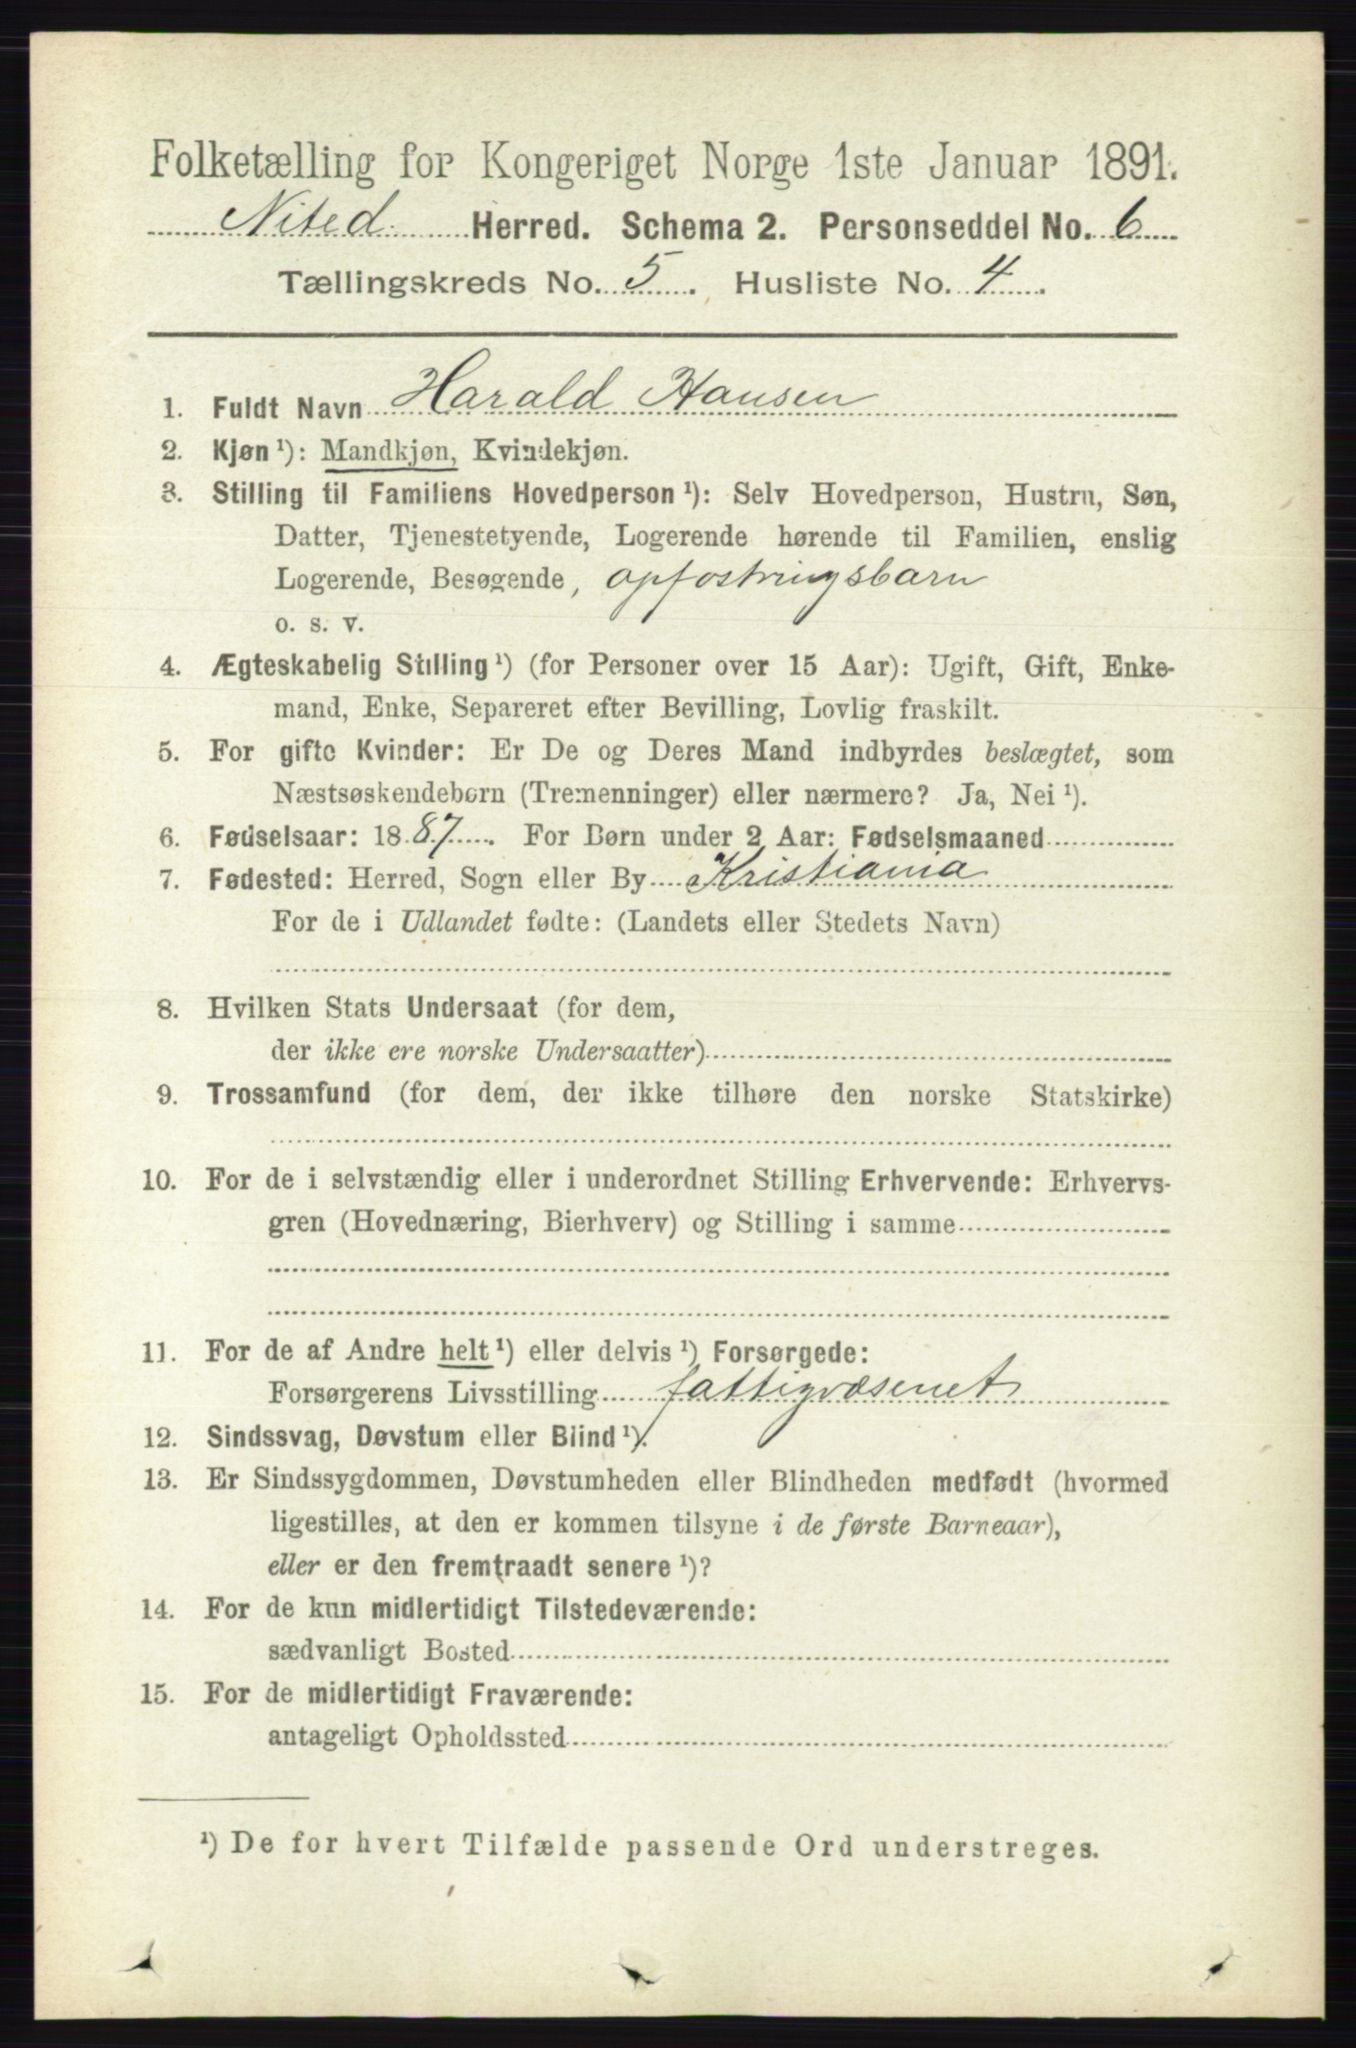 Folketælling for Kongeriget Norge 1ste Januar 1891.
Nited Herred. Schema 2. Personseddel No. 6
Tællingskreds No. 5. Husliste No. 4.
1. Fuldt Navn Harald Hansen
2. Kjøn ¹): Mandkjøn, Kvindekjøn.
3. Stilling til Familiens Hovedperson ¹): Selv Hovedperson, Hustru, Søn,
Datter, Tjenestetyende, Logerende hørende til Familien, enslig
Logerende, Besøgende, opfostringsbarn
o. s. v.
4. Ægteskabelig Stilling ¹) (for Personer over 15 Aar): Ugift, Gift, Enke-
mand, Enke, Separeret efter Bevilling, Lovlig fraskilt.
5. For gifte Kvinder: Er De og Deres Mand indbyrdes beslægtet, som
Næstsøskendebørn (Tremenninger) eller nærmere? Ja, Nei ¹).
6. Fødselsaar: 1887. For Børn under 2 Aar: Fødselsmaaned
7. Fødested: Herred, Sogn eller By Kristiania
For de i Udlandet fødte: (Landets eller Stedets Navn)
8. Hvilken Stats Undersaat (for dem,
der ikke ere norske Undersaatter)
9. Trossamfund (for dem, der ikke tilhøre den norske Statskirke)
10. For de i selvstændig eller i underordnet Stilling Erhvervende: Erhvervs-
gren (Hovednæring, Bierhverv) og Stilling i samme
11. For de af Andre helt ¹) eller delvis ¹) Forsørgede:
Forsørgerens Livsstilling fattigvæsenet
12. Sindssvag, Døvstum eller Blind ¹).
13. Er Sindssygdommen, Døvstumheden eller Blindheden medfødt (hvormed
ligestilles, at den er kommen tilsyne i de første Barneaar),
eller er den fremtraadt senere ¹)?
14. For de kun midlertidigt Tilstedeværende:
sædvanligt Bosted
15. For de midlertidigt Fraværende:
antageligt Opholdssted
¹) De for hvert Tilfælde passende Ord understreges.